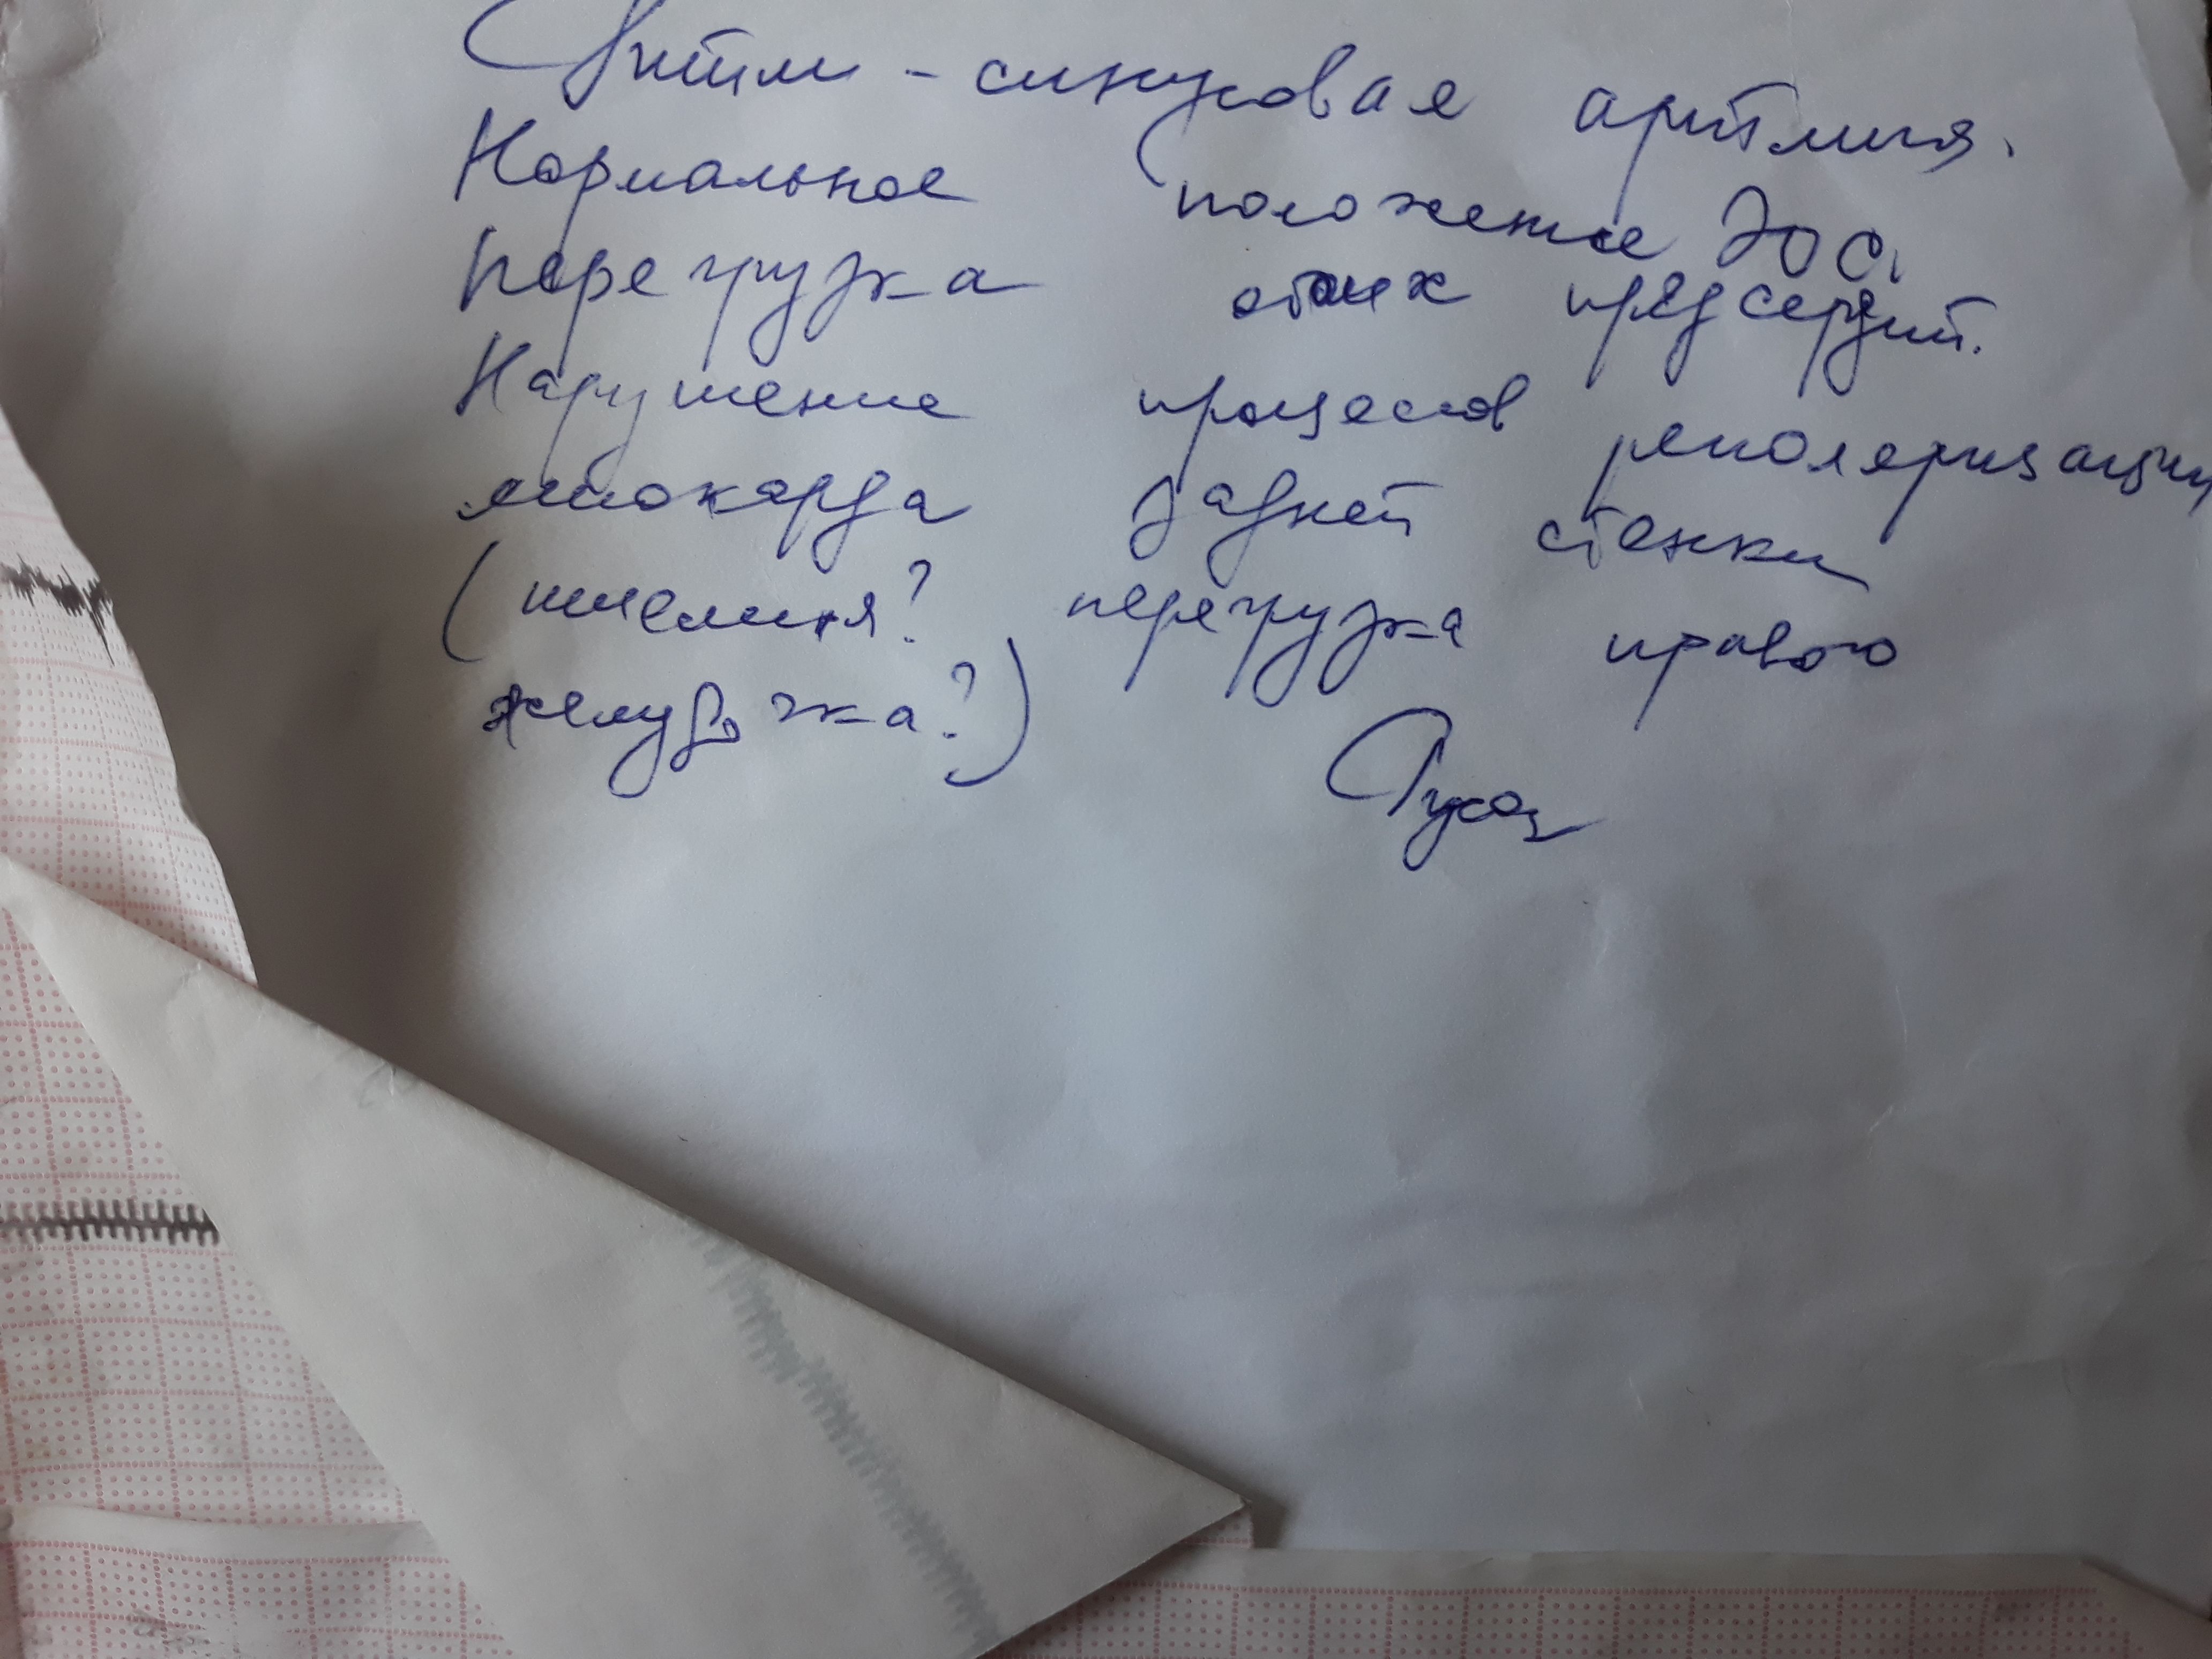 Ритм - синусовая аритмия.
Нормальное положение ЭОС.
Перегрузка обоих предсердий.
Нарушение процессов реполяризации
миокарда задней стенки
(ишемия? перегрузка правого
желудочка?)